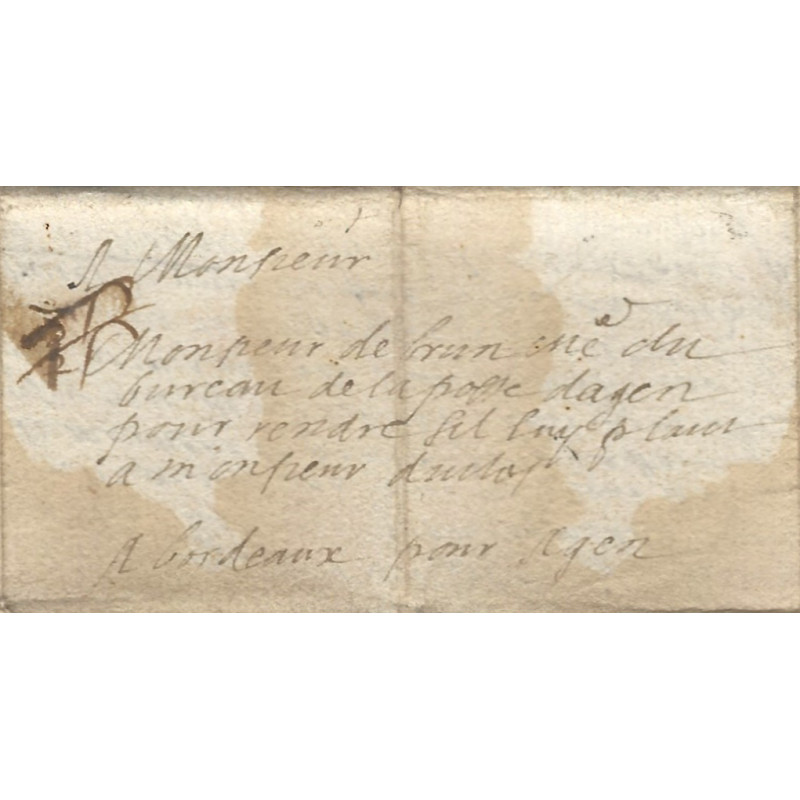 A Monsieur
Monsieur de brun me du
bureau de la poste dagen
pour rendre sil luy plaist
a monsieur
A bordeaux pour Agen